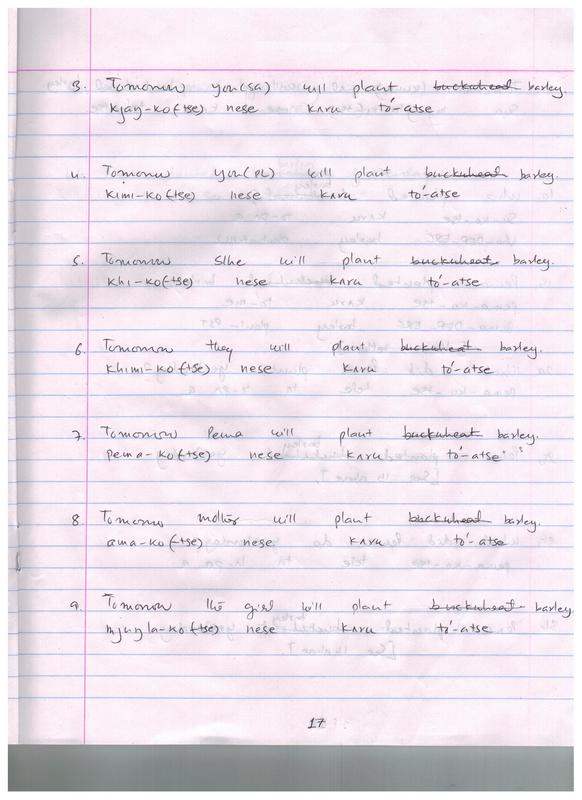 3. Tomorrow you(SG) will plant buckwheat barley.
kjaŋ-ko(tse) nese kʌru to'-atse
4. Tomorrow you(PL) will plant buckwheat barley.
kimi-ko(tse) nese kʌru to'-atse
5. Tomorrow S/he will plant buckwheat barley.
khi-ko(-tse) nese kʌru to'-atse
6. Tomorrow they will plant buckwheat barley.
khimi-ko(-tse) nese kʌru to'-atse
7. Tomorrow Pema will plant buckwheat barley.
pema-ko(-tse) nese kʌru to'-atse
8. Tomorrow mother will plant buckwheat barley.
ama-ko(-tse) nese kʌru to'-atse
9. Tomorrow the girl will plant buckwheat barley.
mjuŋla-ko(-tse) nese kʌru to'-atse
17